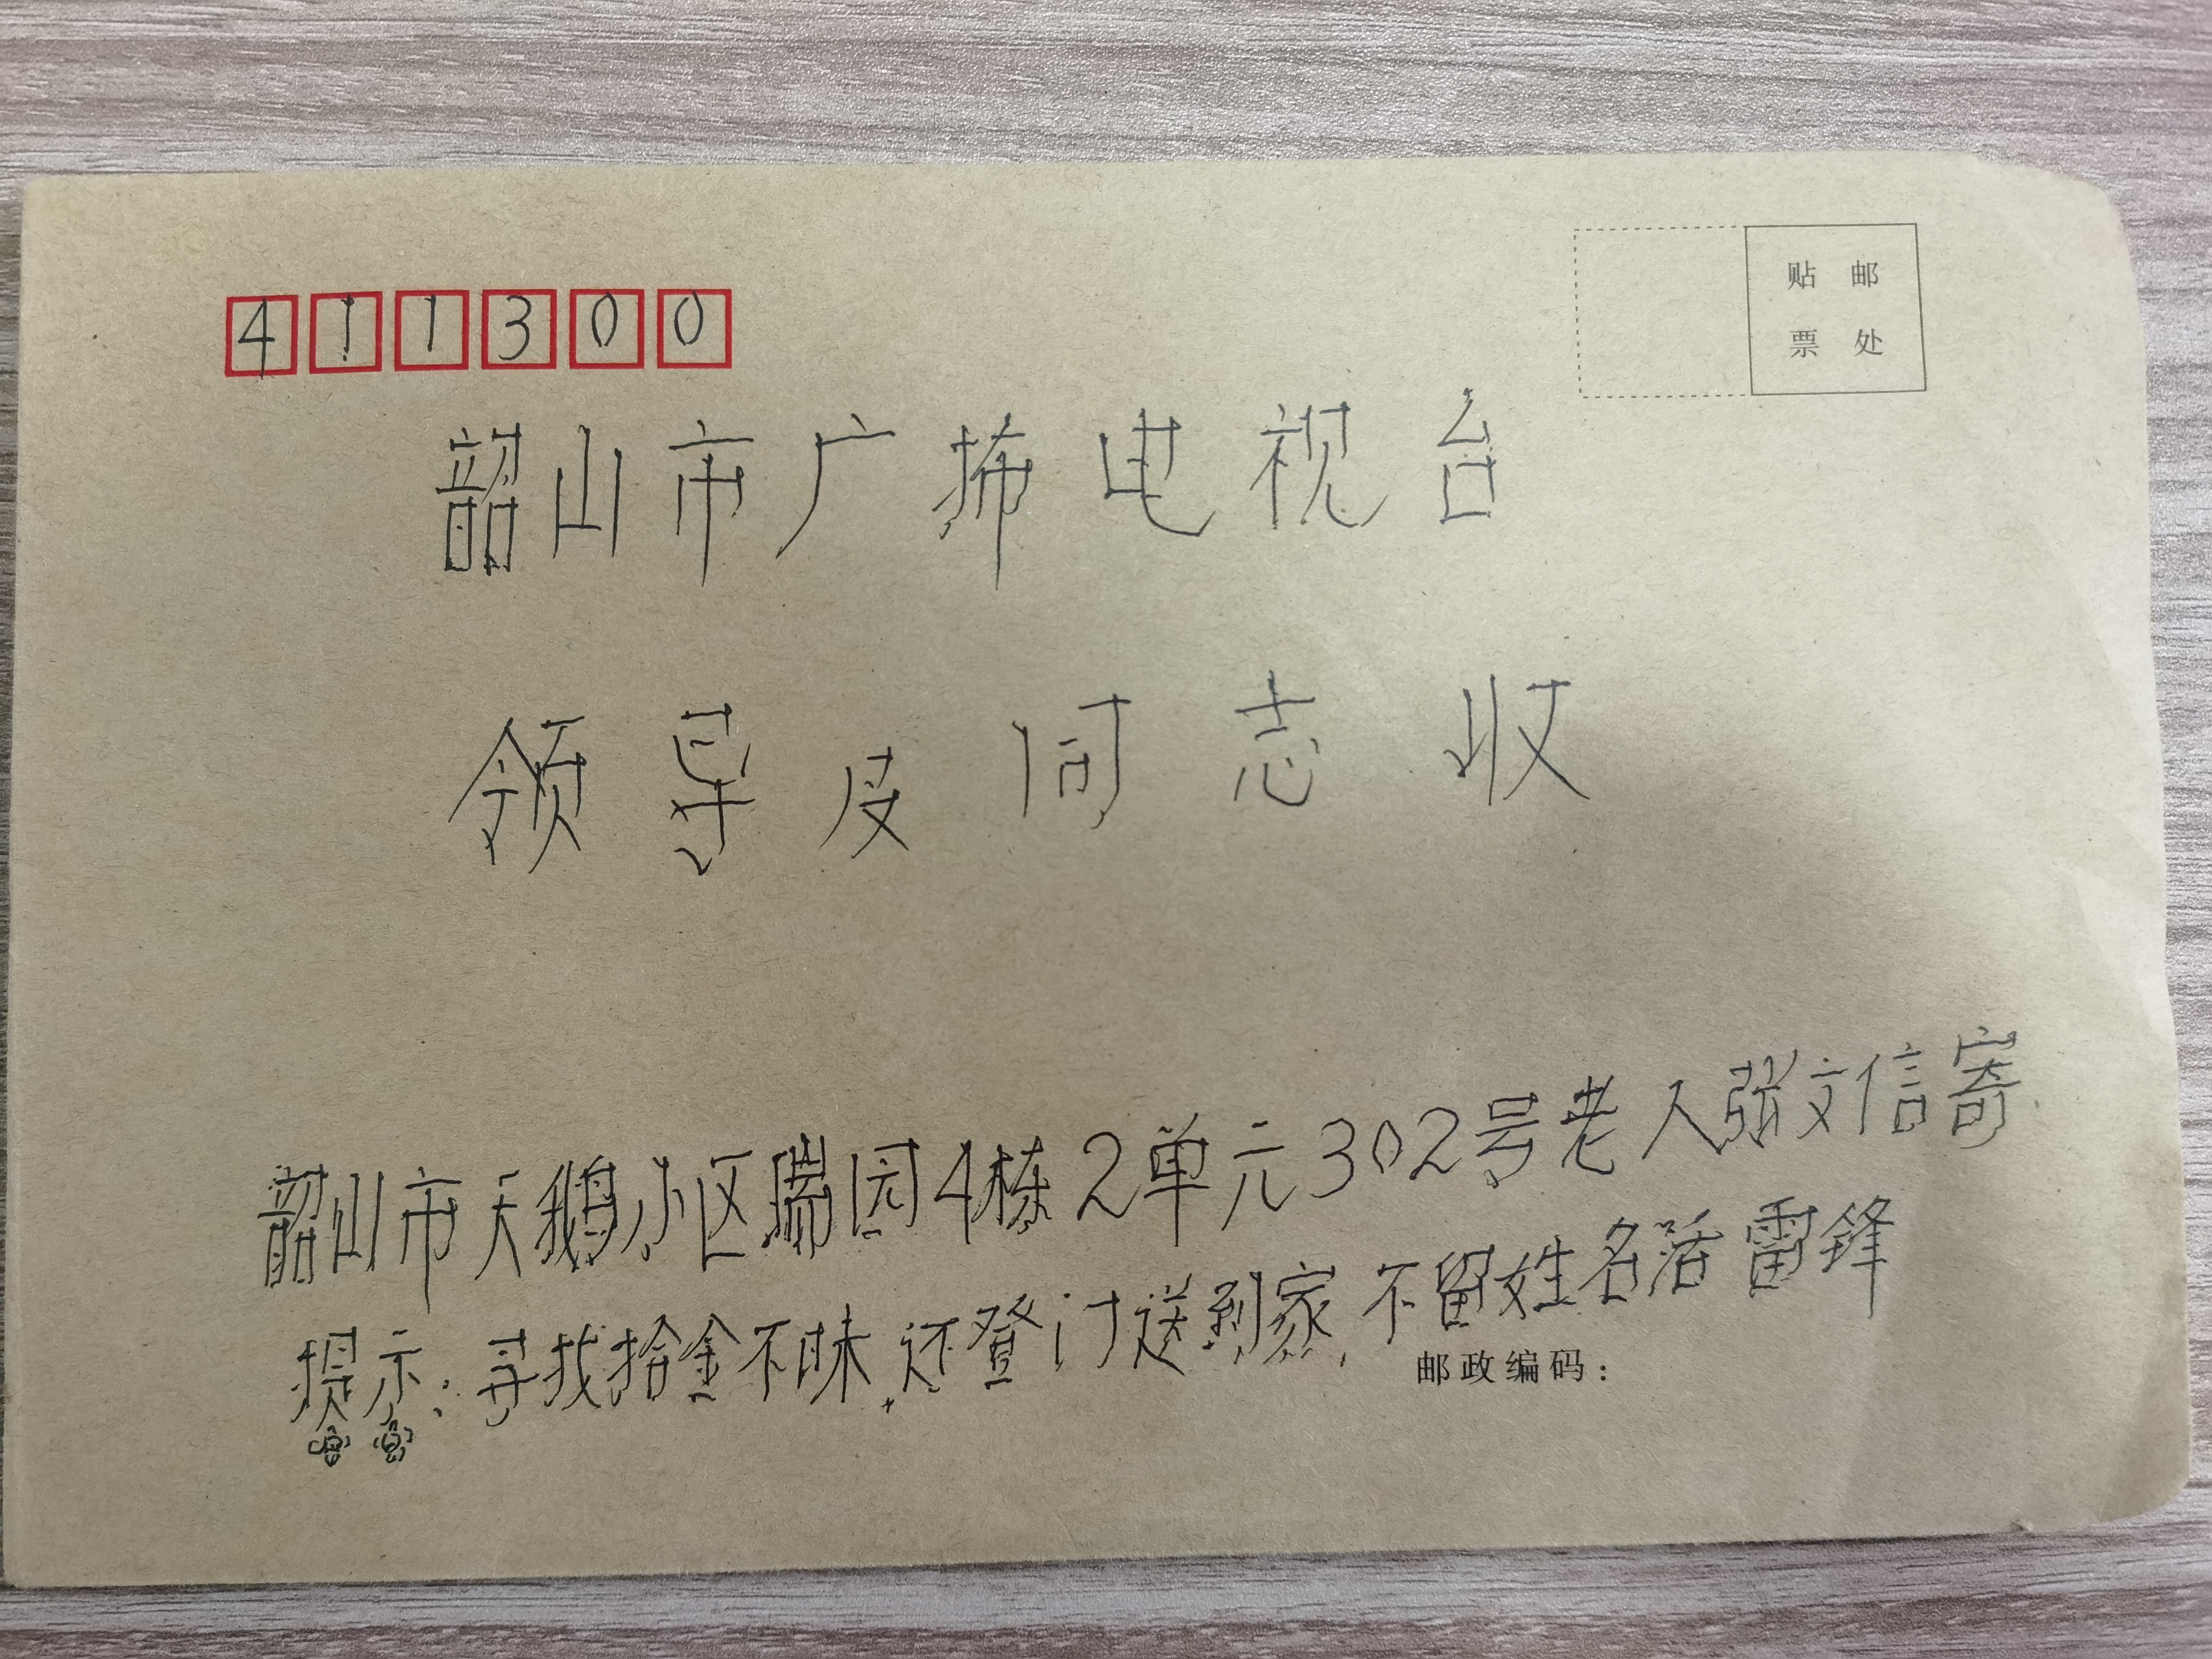 411300
贴邮
票处
韶山市广㧊电视台
领导及同志收
韶山市天鹅小区瑞园4栋2单元302号老人张文信寄
提示：寻找拾金不昧，还登门送到家，不留姓名活雷锋
邮政编码：